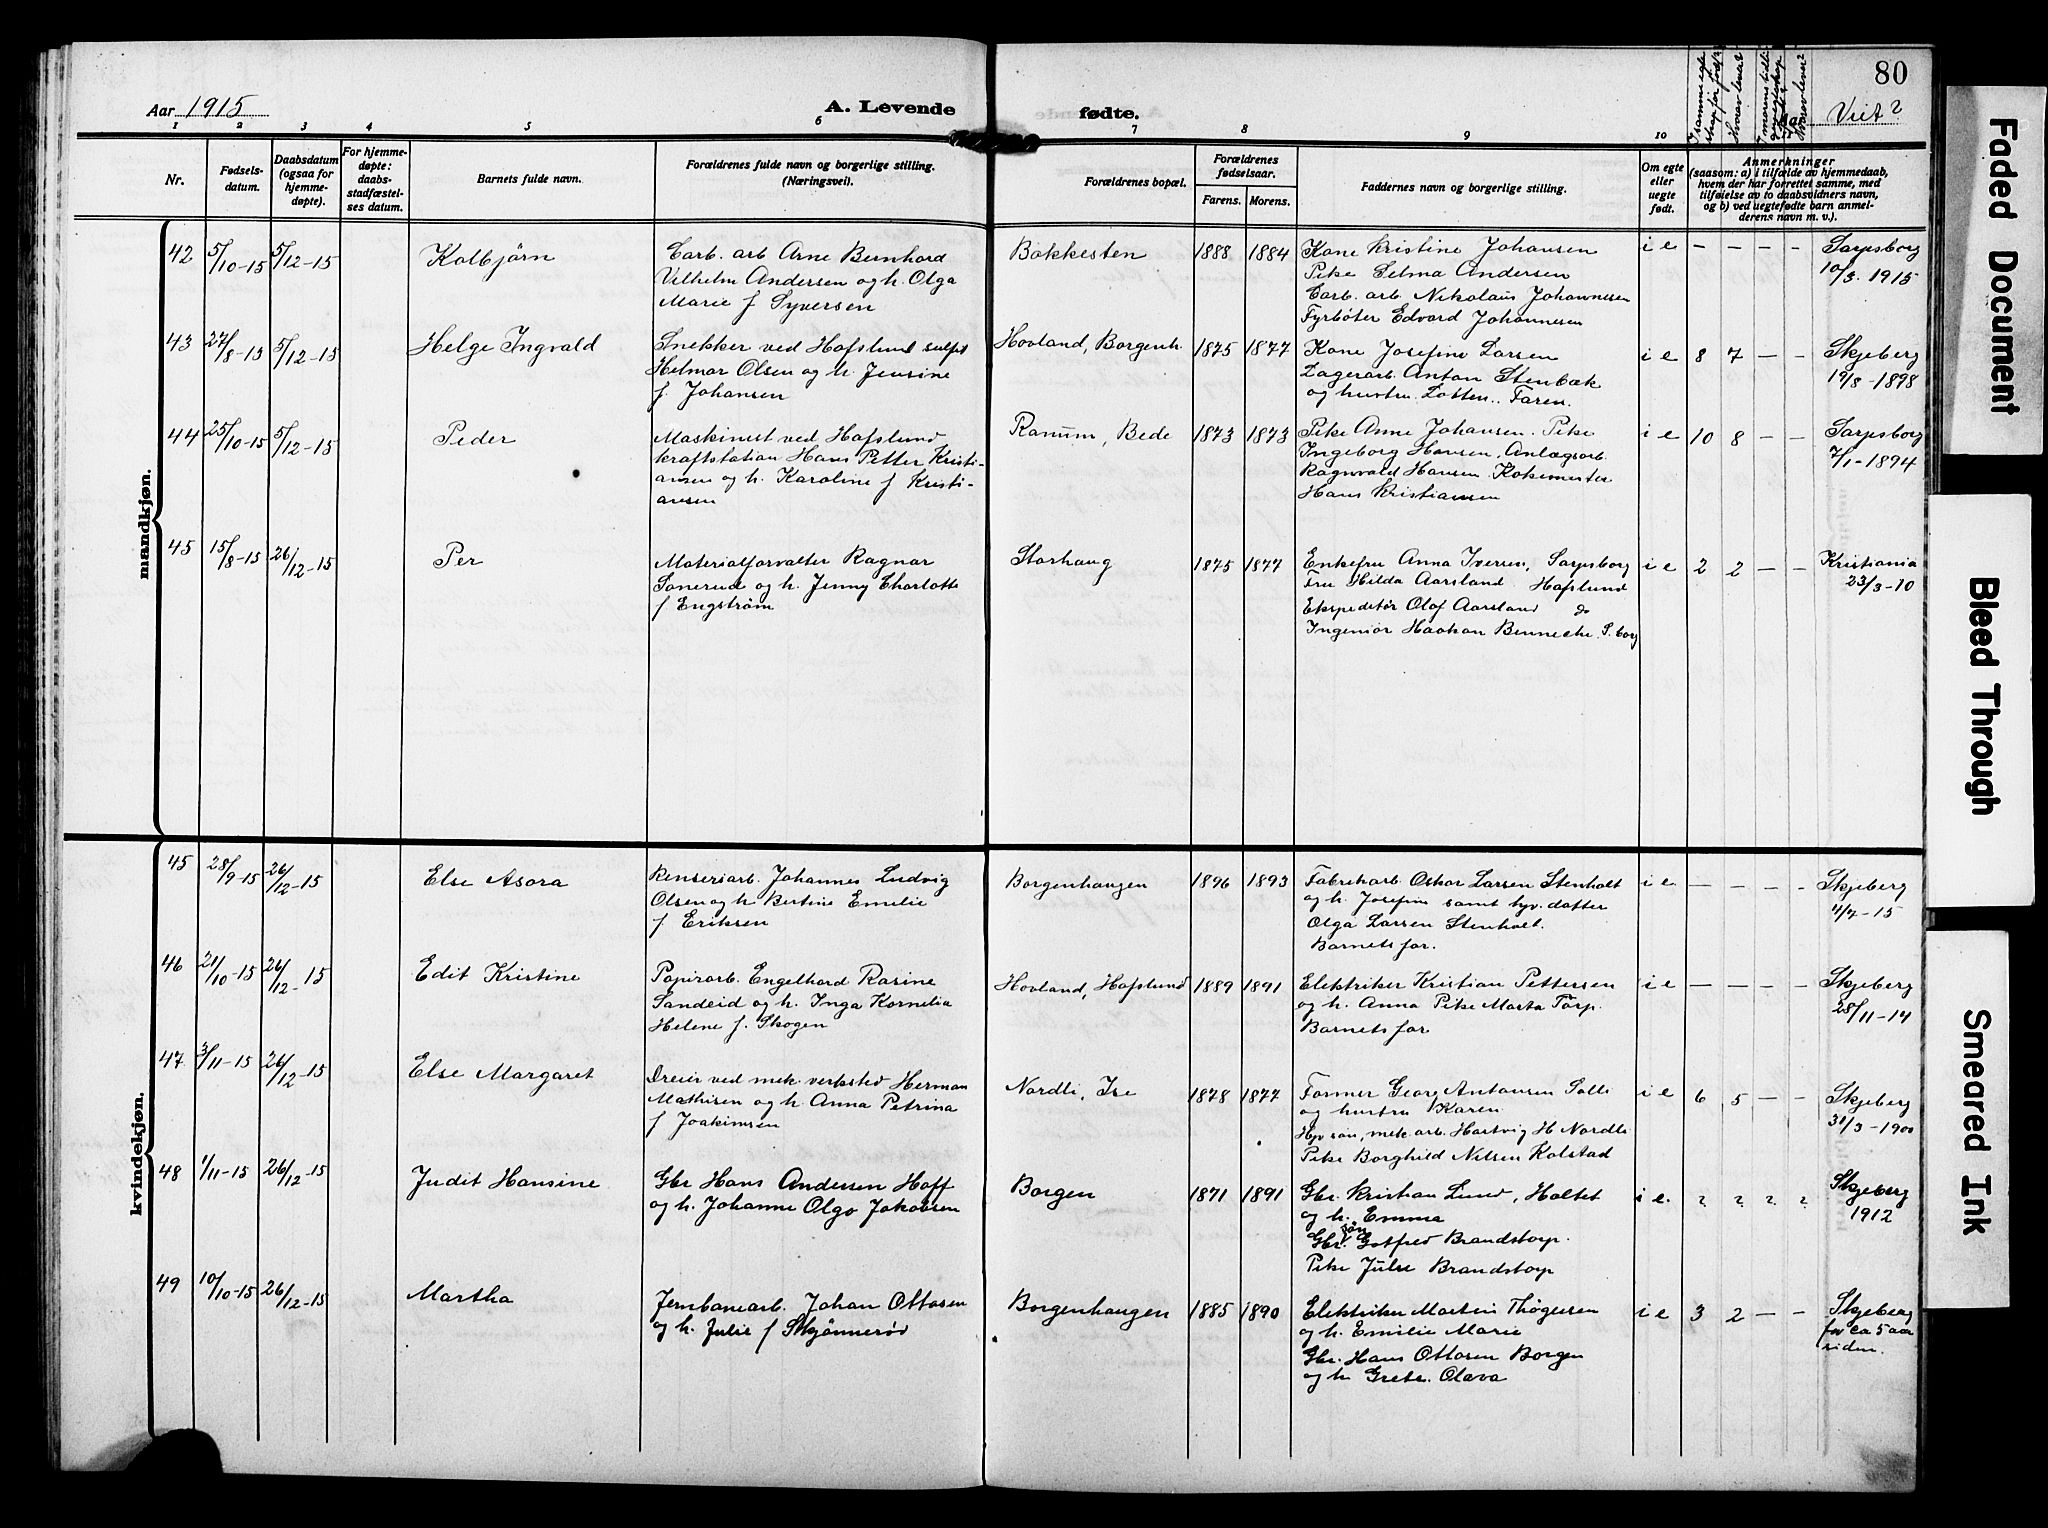 80
Aar 1915
A. Levende
fødte.
Viet?
1 2 3 4 5 6 7 8 9 10
Nr.
Fødsels-
datum.
Daabsdatum
(ogsaa for
hjemme-
døpte).
For hjemme-
døpte:
daabs-
stadfæstel-
ses datum.
Barnets fulde navn.
Forældrenes fulde navn og borgerlige stilling.
(Næringsvei).
Forældrenes bopæl.
Forældrenes
fødselsaar.
Farens. Morens.
Faddernes navn og borgerlige stilling.
Om egte
eller
uegte
født.
Anmerkninger
(saasom: a) i tilfælde av hjemmedaab,
hvem der har forrettet samme, med
tilføielse av to daabsvidners navn,
og b) ved uegtefødte barn anmel-
derens navn m. v.).
mandkjøn.
42 5/10-15 5/12-15 Kolbjörn
Carb. arb Arne Bernhard
Vilhelm Andersen og h. Olga
Marie f Syversen
Bakkesten 1888 1884
Kone Kristine Johansen
Pike Selma Andersen
Carb. arb. Nikolaus Johannesen
Fyrbøter Edvard Johannesen
i e – – – – Sarpsborg
10/3. 1915
43 27/8-15 5/12-15 Helge Ingvald
Snekker ved Hafslund sulfit
Helmar Olsen og h. Jensine
f. Johansen
Hovland, Borgenh. 1875 1877
Kone Josefine Larsen
Lagerarb. Anton Stenbæk
og hustru Lotten. Faren.
i e 8 7 – – Skjeberg
19/8-1898
44 25/10-15 5/12-15 Peder
Maskinist ved Hafslund
kraftstation Hans Petter Kristi-
ansen og h. Karoline f Kristi-
ansen
Ranum, Bede 1873 1873
Pike Anne Johansen. Pike
Ingeborg Hansen, Anlægsarb.
Ragnvald Hansen Kokemester
Hans Kristiansen
i e 10 8 – – Sarpsborg
7/1-1894
45 15/8-15 26/12-15 Per
Materialforvalter Ragnar
Sonerud og h. Jenny Charlotte
f Engstrøm
Storhaug 1875 1877
Enkefru Anna Iversen, Sarpsborg
Fru Hilda Aarsland Hafslund
Ekspeditør Olaf Aarsland do
Ingeniør Haakon Bennecke S.borg
i e 2 2 – – Kristiania
23/3-10
kvindekjøn.
45 28/9-15 26/12-15 Else Asora
Renseriarb. Johannes Ludvig
Olsen og h Bertine Emilie
f Eriksen
Borgenhaugen 1896 1893
Fabrekarb. Oskar Larsen Stenholt
og h. Josefin samt hjv. datter
Olga Larsen Stenholt.
Barnets far.
i e. – – – – Skjeberg
4/7-15
46 21/10-15 26/12-15 Edit Kristine
Papirarb. Engelhard Rasine
Sandeid og h. Inga Kornelia
Helene f. Skogen
Hovland, Hafslund 1889 1891
Elektriker Kristian Pettersen
og h. Anna Pike Marta Torp.
Barnets far
i e – – – – Skjeberg
28/11-14
47 3/11-15 26/12-15 Else Margaret
Dreier ved mek. verksted Herman
Mathisen og h. Anna Petrina
f Joakimsen
Nordli, Ise 1878 1877
Former Georg Antonsen Solli
og hustru Karen
Hjv søn, mek. arb. Hartvig H. Nordli
Pike Borghild Nilsen Kolstad
i e 6 5 – – Skjeberg
31/3-1900
48 1/11-15 26/12-15 Judit Hansine
Gbr Hans Andersen Hoff
og h. Johanne Olga Jakobsen
Borgen 1871 1891
Gbr. Kristian Lund, Holtet
og h. Emma
Gbr. søn Gotfred Brandstorp.
Pike Julie Brandstorp
i e. ? ? ? ? Skjeberg
1912
49 10/10-15 26/12-15 Martha
Jernbanearb. Johan Ottosen
og h. Julie f Skjønnerød
Borgenhaugen 1885 1890
Elektriker Martin Thøgersen
og h. Emilie Marie
Gbr. Hans Ottosen Borgen
og h Grete. Olava
i e 3 2 – – Skjeberg
for ca 5 aar
siden.
Faded Document
Bleed Through
Smeared Ink